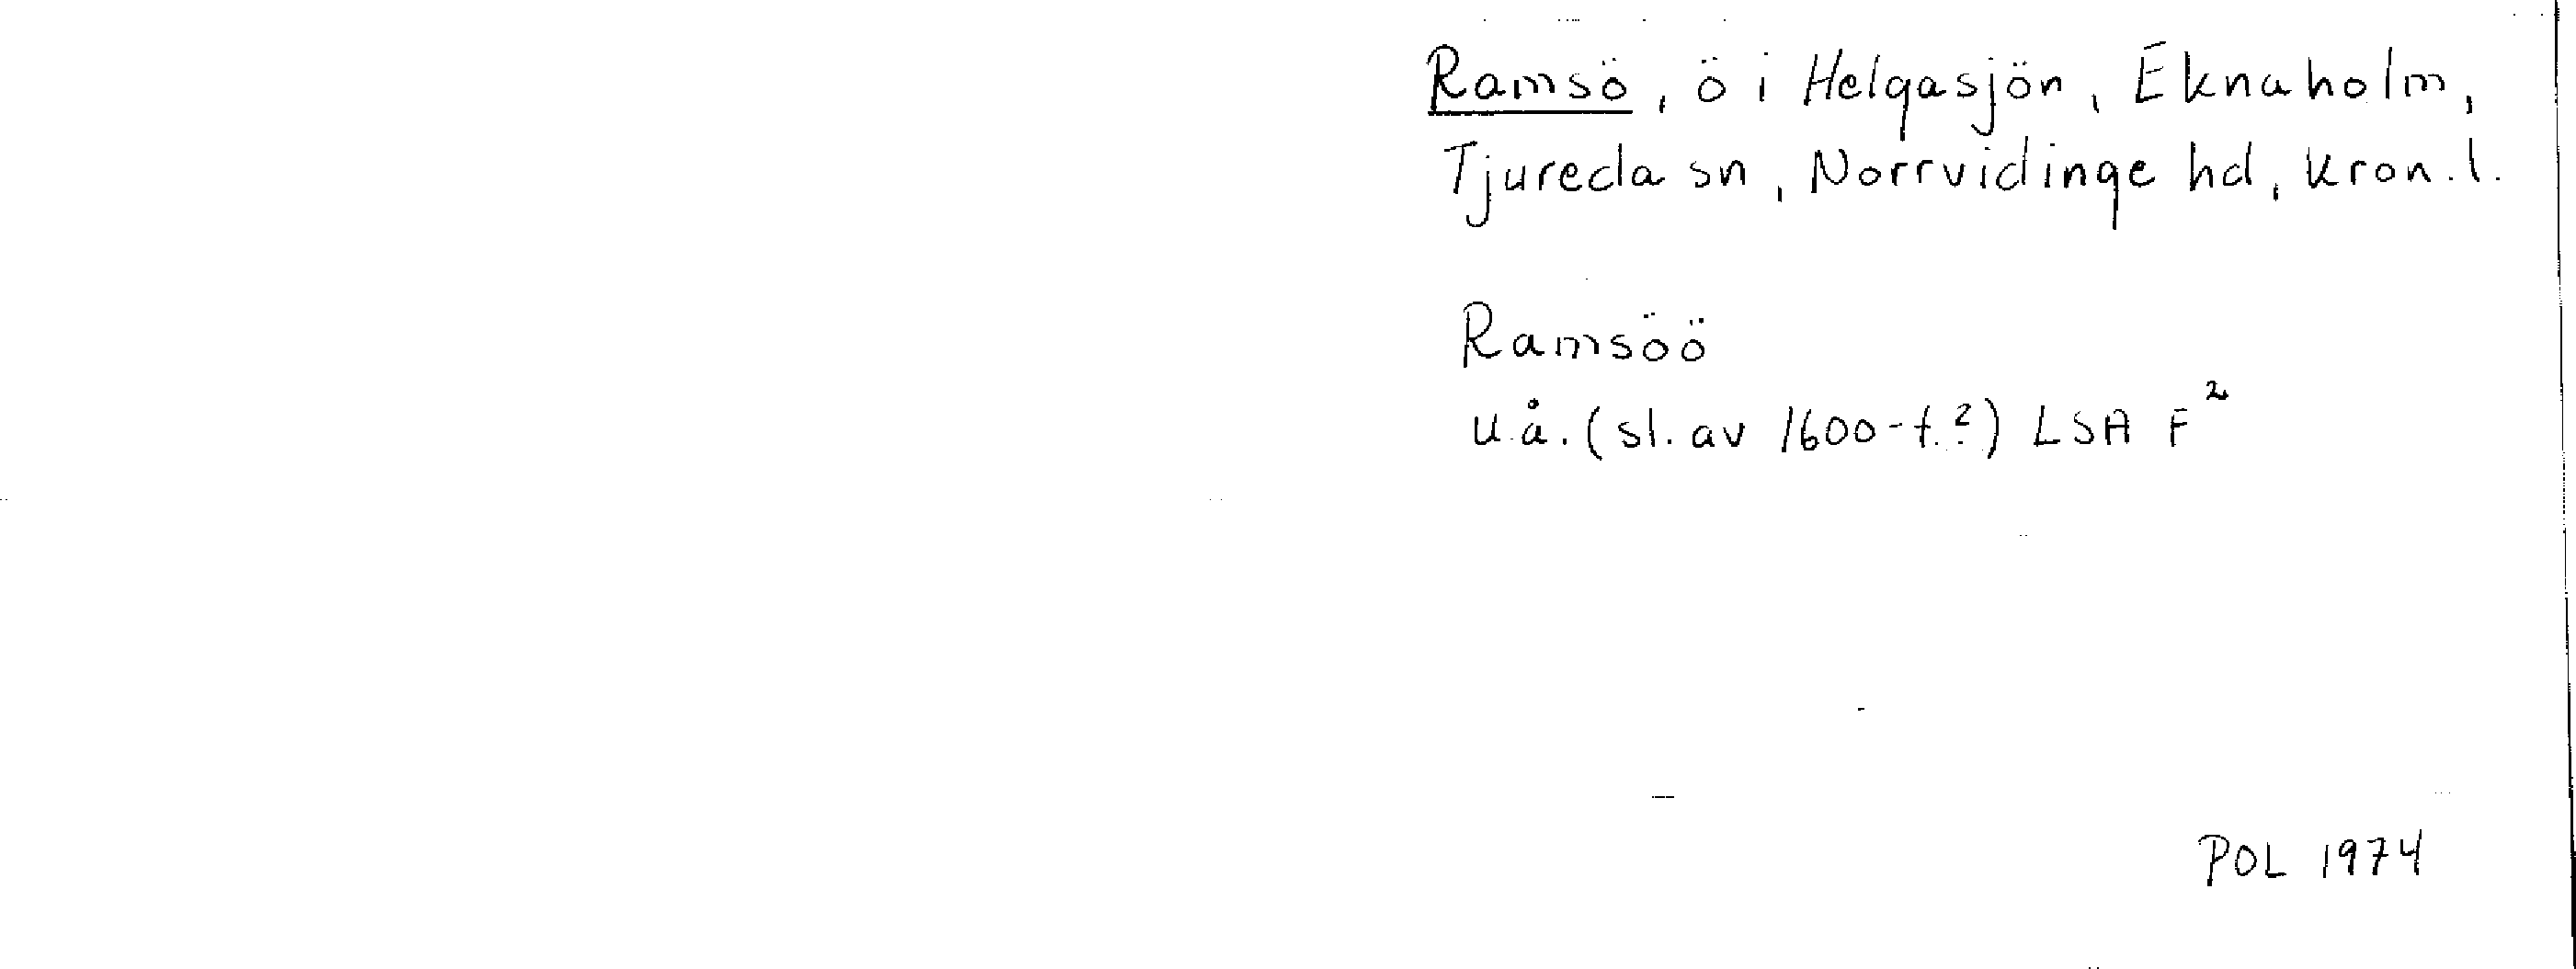 Ramsö, ö i Helgasjön, Eknaholm,
Tjureda sn, Norrvidinge hd, Kron.l.
Ramsöö
u.å. (sl. av 1600-t.?) LSA F²
POL 1974